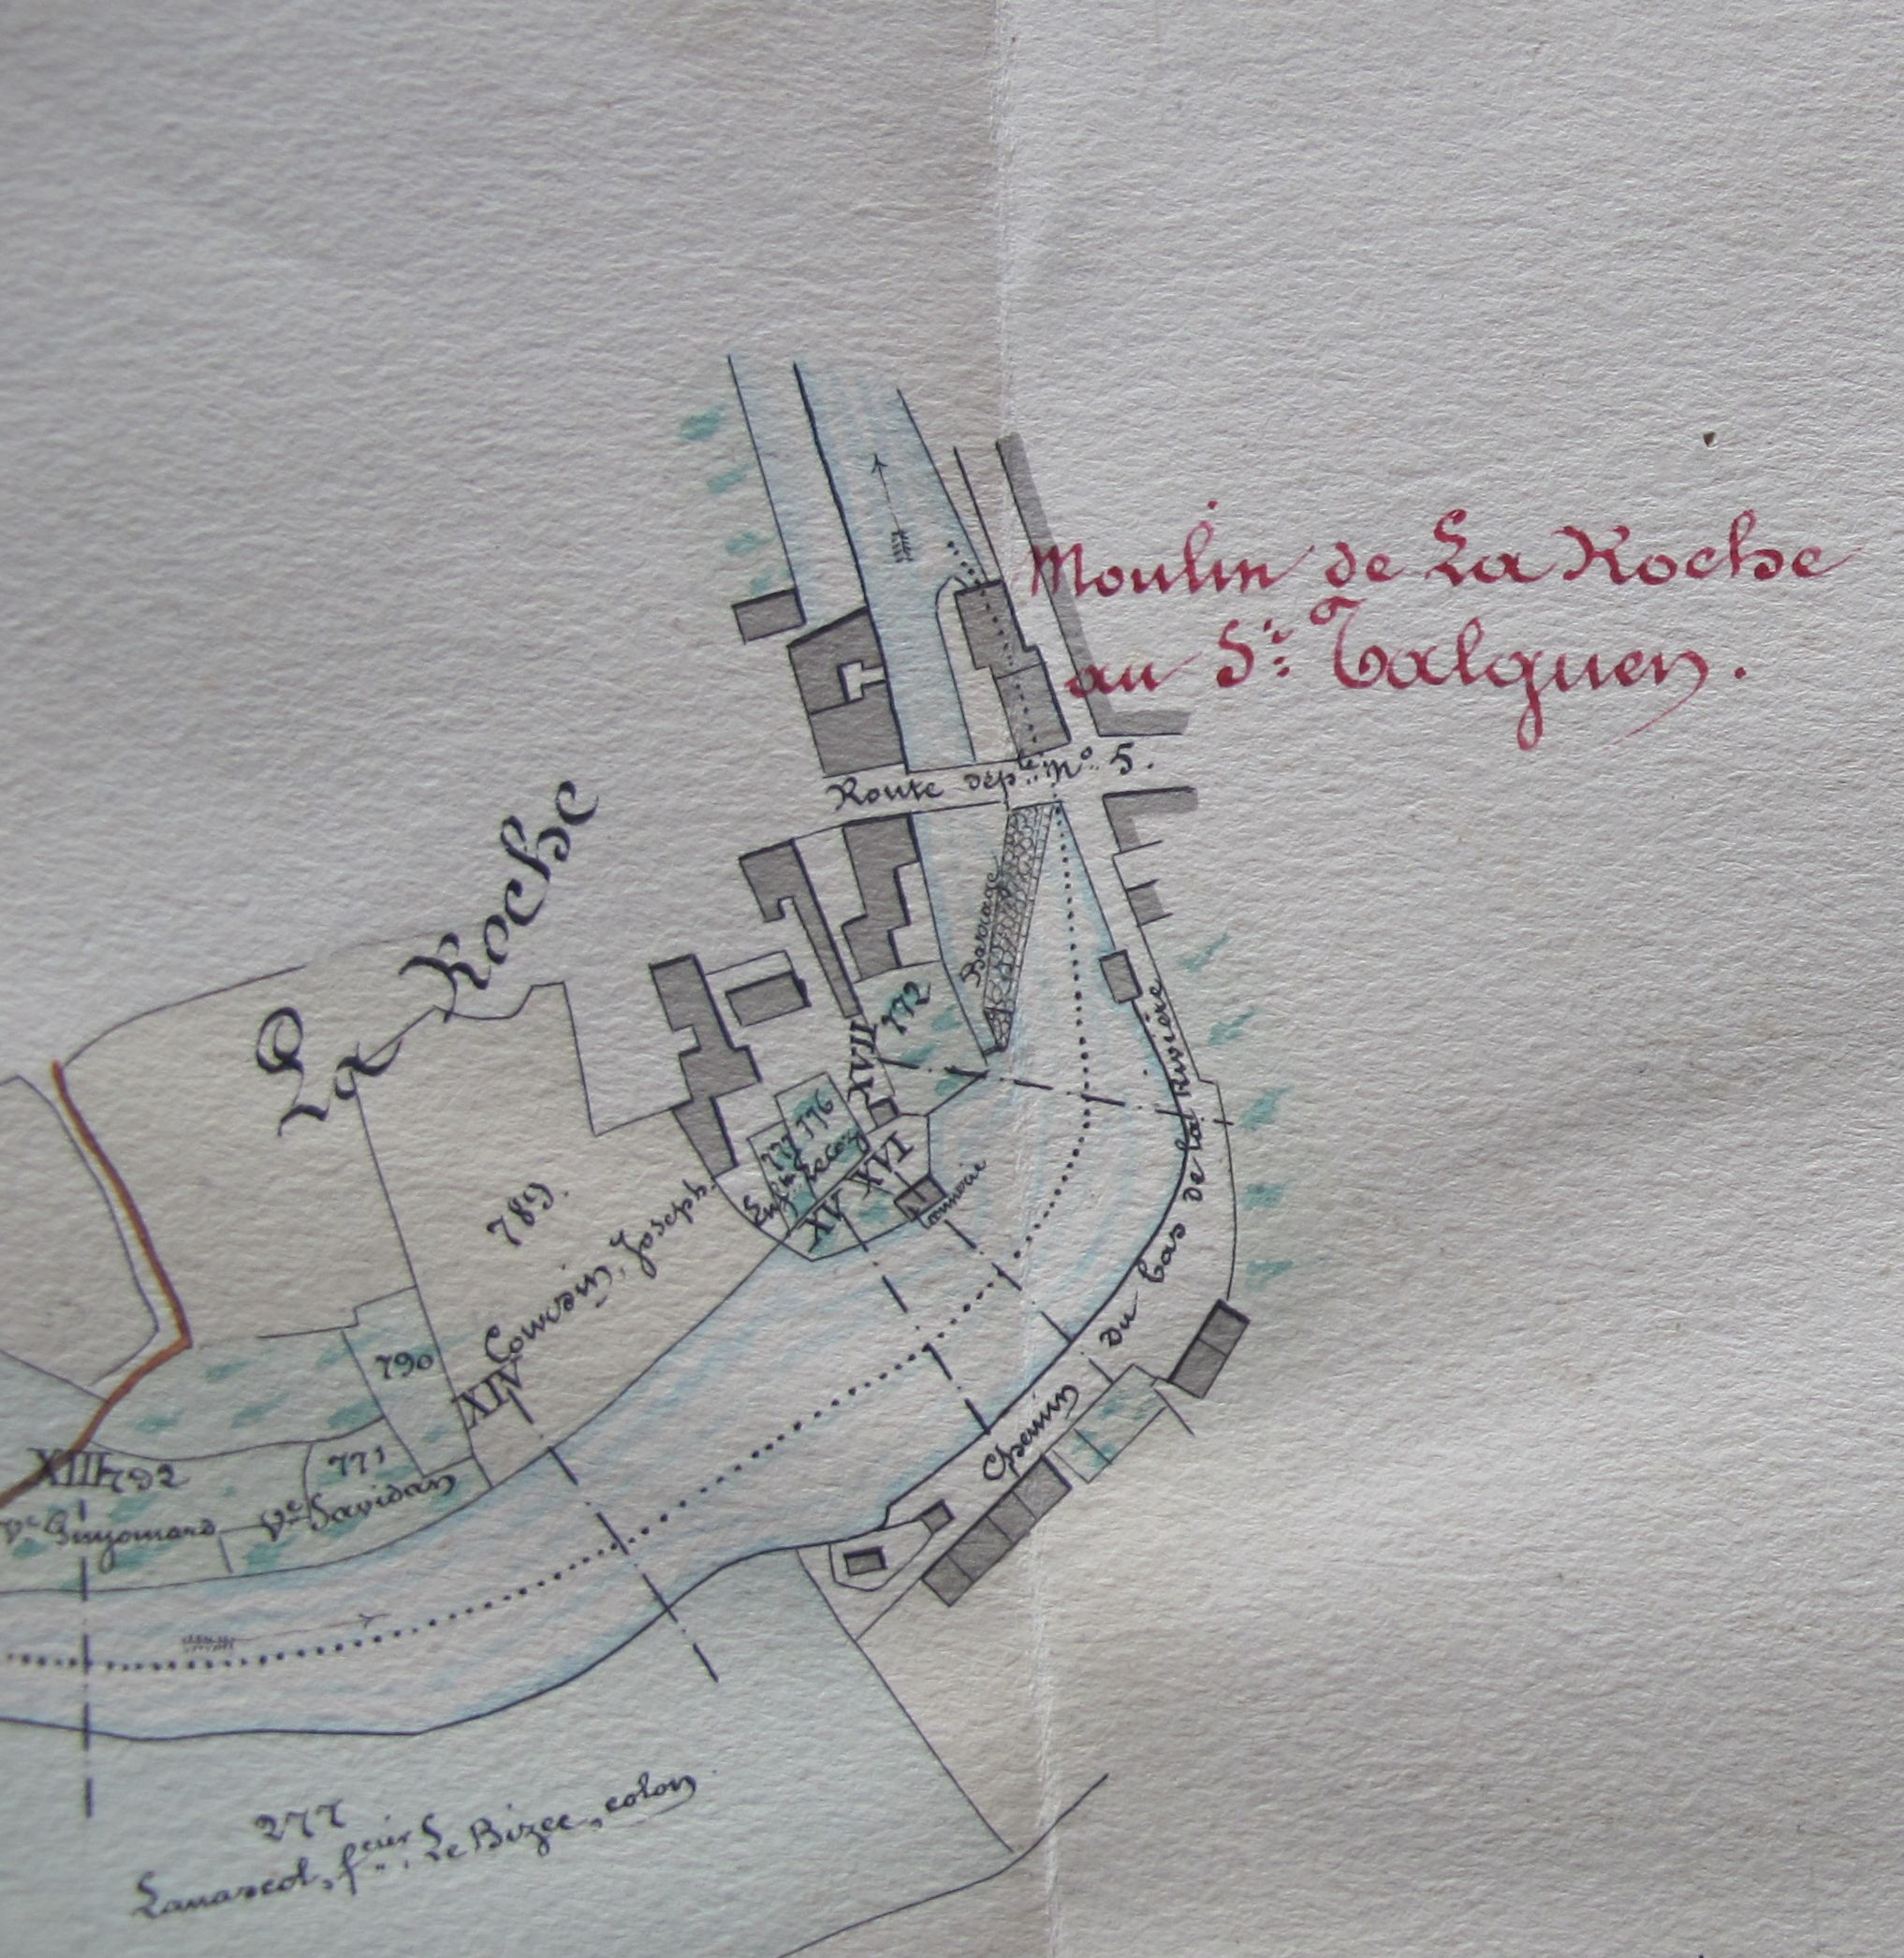 Moulin de La Roche
au Sr. Talguen.
Route déple. No. 5.
La Roche
Barrage
772
XVII
776
777
Enfts. Lecoz
XVI
XV
Tannerie
789.
Cowdin, Joseph.
XIV
790
771
Ve. Savidan
XIII
792
Ve. Guyomard
Chemin du bas de la rivière
277
fcier. Le Bizec, colon